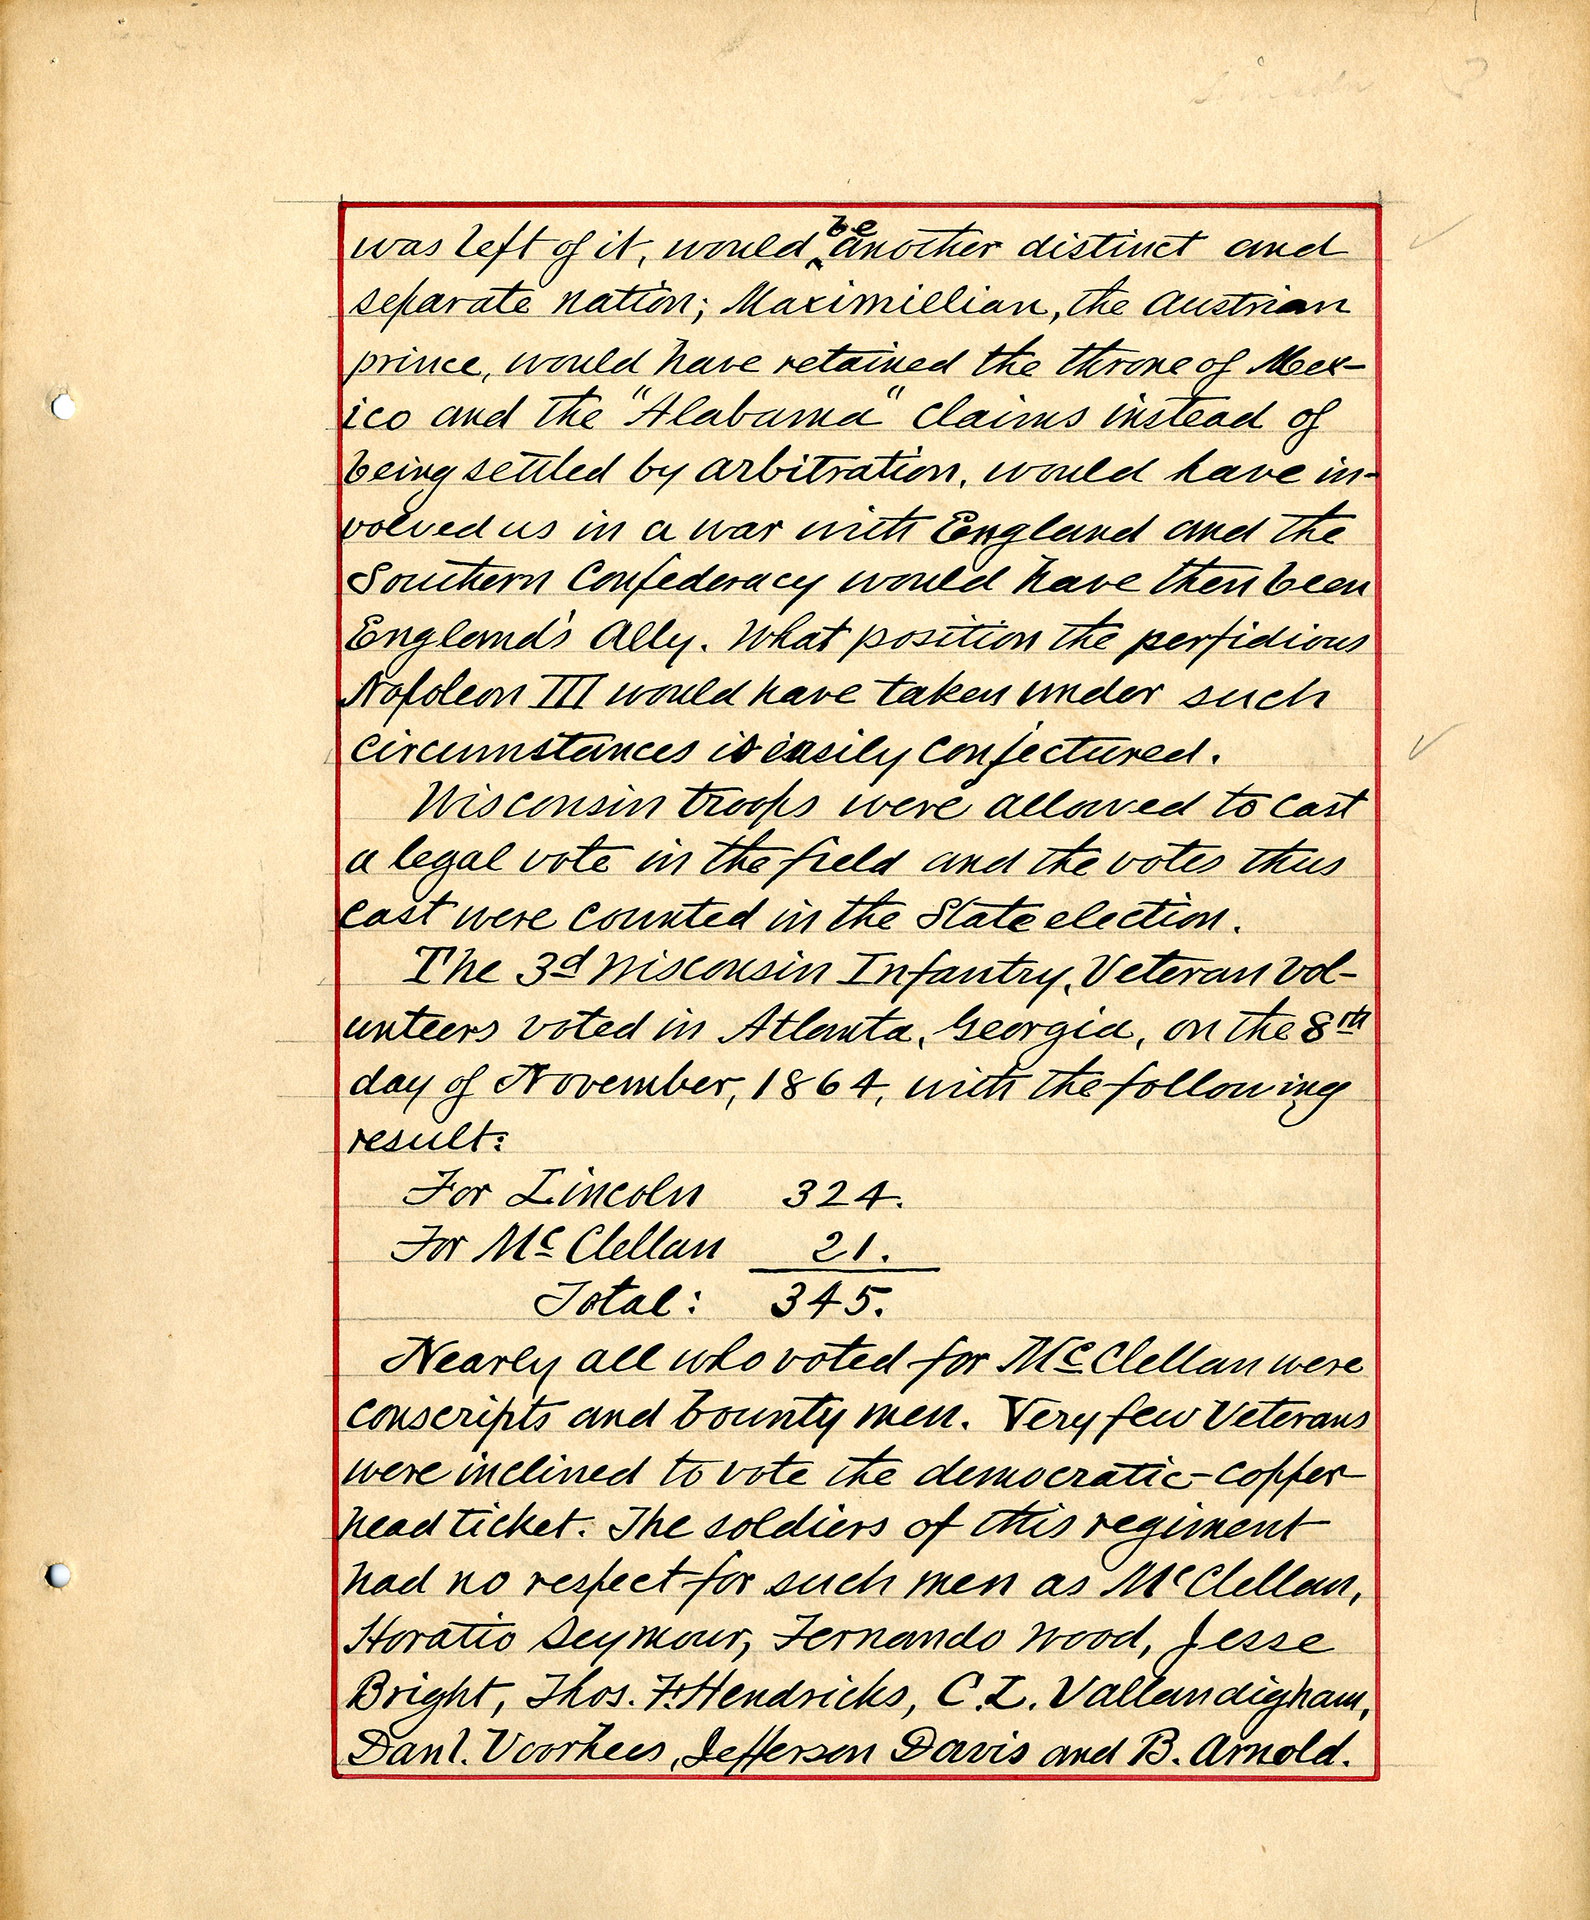 Lincoln
was left of it, would be another distinct and
separate nation; Maximillian, the Austrian
prince, would have retained the throne of Mex-
ico and the "Alabama" claims instead of
being settled by arbitration, would have in-
volved us in a war with England and the
Southern Confederacy would have then been
England's Ally. What position the perfidious
Napoleon III would have taken under such
circumstances is easily conjectured.
Wisconsin troops were allowed to cast
a legal vote in the field and the votes thus
cast were counted in the State election.
The 3d Wisconsin Infantry, Veteran Vol-
unteers voted in Atlanta, Georgia, on the 8th
day of November, 1864, with the following
result:
For Lincoln 324.
For McClellan 21.
Total: 345.
Nearly all who voted for McClellan were
conscripts and bounty men. Very few Veterans
were inclined to vote the democratic-copper
head ticket. The soldiers of this regiment
had no respect for such men as McClellan,
Horatio Seymour, Fernando Wood, Jesse
Bright, Thos. F. Hendricks, C. L. Vallandigham,
Danl. Voorhees, Jefferson Davis and B. Arnold.